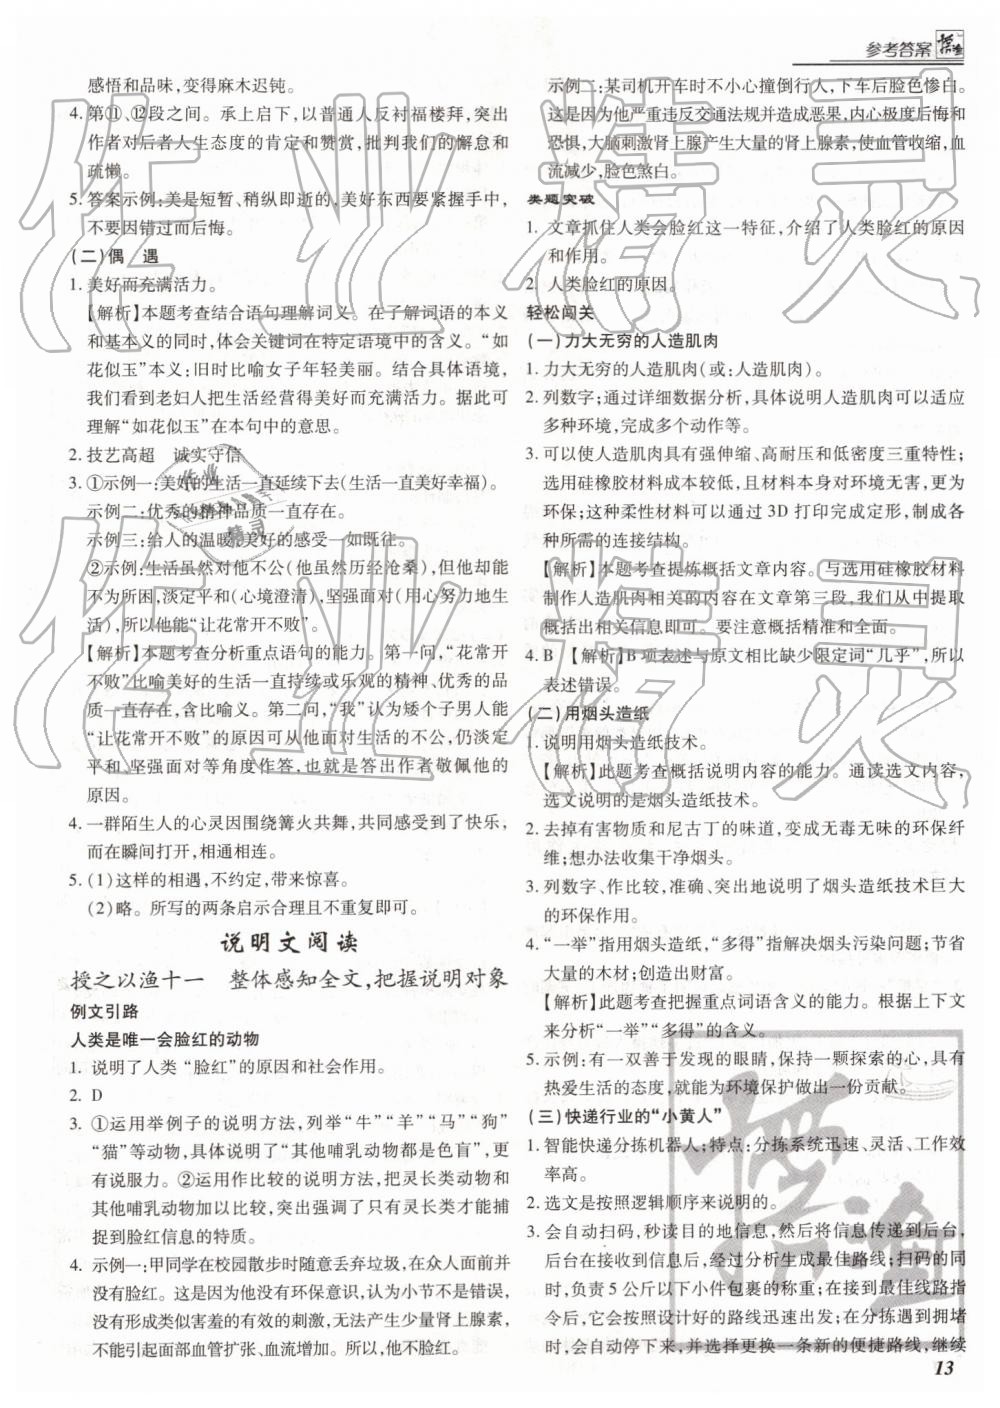 参考答案
感悟和品味,变得麻木迟钝。
4. 第⑪、⑫段之间。承上启下,以普通人反衬福楼拜,突出
作者对后者人生态度的肯定和赞赏,批判我们的懈怠和
疏懒。
5. 答案示例:美是短暂、稍纵即逝的,美好东西要紧握手中,
不要因错过而后悔。
(二)偶 遇
1. 美好而充满活力。
【解析】本题考查结合语句理解词义。在了解词语的本义
和基本义的同时,体会关键词在特定语境中的含义。“如
花似玉”本义:旧时比喻女子年轻美丽。结合具体语境,
我们看到老妇人把生活经营得美好而充满活力。据此可
理解“如花似玉”在本句中的意思。
2. 技艺高超 诚实守信
3. ①示例一:美好的生活一直延续下去(生活一直美好幸福)。
示例二:优秀的精神品质一直存在。
示例三:给人的温暖、美好的感受一如既往。
②示例:生活虽然对他不公(他虽然历经沧桑),但他却能
不为所困,淡定平和(心境澄清),坚强面对(用心努力地生
活),所以他能“让花常开不败”。
【解析】本题考查分析重点语句的能力。第一问,“花常开
不败”比喻美好的生活一直持续或乐观的精神、优秀的品
质一直存在,含比喻义。第二问,“我”认为矮个子男人能
“让花常开不败”的原因可从他面对生活的不公,仍淡定
平和、坚强面对等角度作答,也就是答出作者敬佩他的
原因。
4. 一群陌生人的心灵因围绕篝火共舞,共同感受到了快乐,
而在瞬间打开,相通相连。
5. (1)这样的相遇,不约定,带来惊喜。
(2)略。所写的两条启示合理且不重复即可。
说明文阅读
授之以渔十一 整体感知全文,把握说明对象
例文引路
人类是唯一会脸红的动物
1. 说明了人类“脸红”的原因和社会作用。
2. D
3. ①运用举例子的说明方法,列举“牛”“羊”“马”“狗”
“猫”等动物,具体说明了“其他哺乳动物都是色盲”,更
有说服力。②运用作比较的说明方法,把灵长类动物和
其他哺乳动物加以比较,突出强调了只有灵长类动物才能捕
捉到脸红信息的特质。
4. 示例一:甲同学在校园散步时随意丢弃垃圾,在众目睽睽下并
没有脸红。这是因为他没有环保意识,认为小节不是错误,
没有形成类似害羞的有效的刺激,无法产生少量肾上腺素,
不能引起面部血管扩张、血流增加。所以,他不脸红。
示例二:某司机开车时不小心撞倒行人,下车后脸色惨白。
这是因为他严重违反交通法规并造成恶果,内心极度后悔和
恐惧,大脑刺激肾上腺产生大量的肾上腺素,使血管收缩,血
流减少,脸色煞白。
类题突破
1. 文章抓住人类会脸红这一特征,介绍了人类脸红的原因
和作用。
2. 人类脸红的原因。
轻松闯关
(一)力大无穷的人造肌肉
1. 力大无穷的人造肌肉(或:人造肌肉)。
2. 列数字;通过详细数据分析,具体说明人造肌肉可以适应
多种环境,完成多个动作等。
3. 可以使人造肌肉具有强伸缩、高耐压和低密度三重特性;
选用硅橡胶材料成本较低,且材料本身对环境无害,更为
环保;这种柔性材料可以通过3D打印完成定形,制成各
种所需的连接结构。
【解析】本题考查提炼概括文章内容。与选用硅橡胶材料
制作人造肌肉相关的内容在文章第三段,我们从中提取
概括出相关信息即可。要注意概括精准和全面。
4. B 【解析】B项表述与原文相比缺少限定词“几乎”,所以
表述错误。
(二)用烟头造纸
1. 说明用烟头造纸技术。
【解析】此题考查概括说明内容的能力。通读选文内容,
选文说明的是烟头造纸技术。
2. 去掉有害物质和尼古丁的味道,变成无毒无味的环保纤
维;想办法收集干净烟头。
3. 列数字、作比较,准确、突出地说明了烟头造纸技术巨大
的环保作用。
4. “一举”指用烟头造纸,“多得”指解决烟头污染问题;节省
大量的木材;创造出财富。
【解析】此题考查把握重点词语含义的能力。根据上下文
来分析“一举”“多得”的含义。
5. 示例:有一双善于发现的眼睛,保持一颗探索的心,具有
热爱生活的态度,就能为环境保护做出一份贡献。
(三)快递行业的“小黄人”
1. 智能快递分拣机器人;特点:分拣系统迅速、灵活、工作效
率高。
2. 选文是按照逻辑顺序来说明的。
3. 会自动扫码,秒读目的地信息,然后将信息传递到后台,
后台在接收到信息后,经过分析生成最佳路线;扫码的同
时,负责5公斤以下小件包裹的称重;在接到最佳线路指
令后,它会按照设计好的路线迅速出发;在分拣遇到拥堵
时,会停下来等待,并选择更换一条新的便捷路线,继续
13
作业精灵
作业精灵